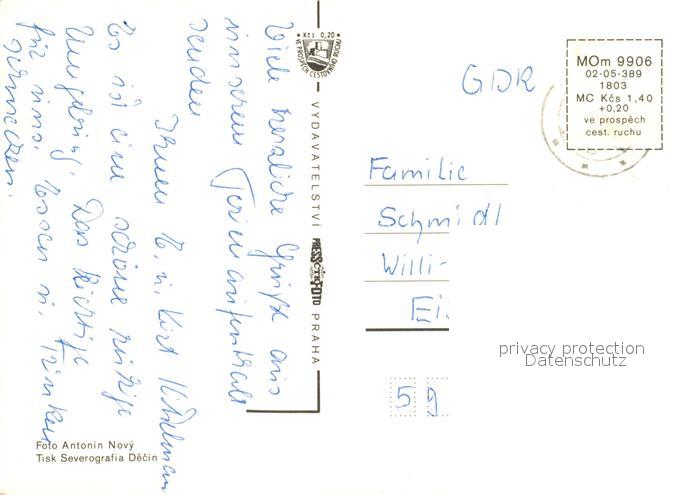 Viele herzliche Grüße aus
unserem Ferienaufenthalt
senden
Ihnen K. u. Kurt
Es ist eine schöne ruhige
Umgebung. Das Richtige
für uns. Essen u. Trinken
schmecken.
Foto Antonin Nový
Tisk Severografia Děčín
• Kčs 0,20 •
VE PROSPĚCH CESTOVNÍHO RUCHU
VYDAVATELSTVÍ PRESSFOTO PRAHA
GDR
MOm 9906
02-05-389
1803
MC Kčs 1,40
+0,20
ve prospěch
cest. ruchu
Familie
Schmidl
Willi-
Ei
59
privacy protection
Datenschutz